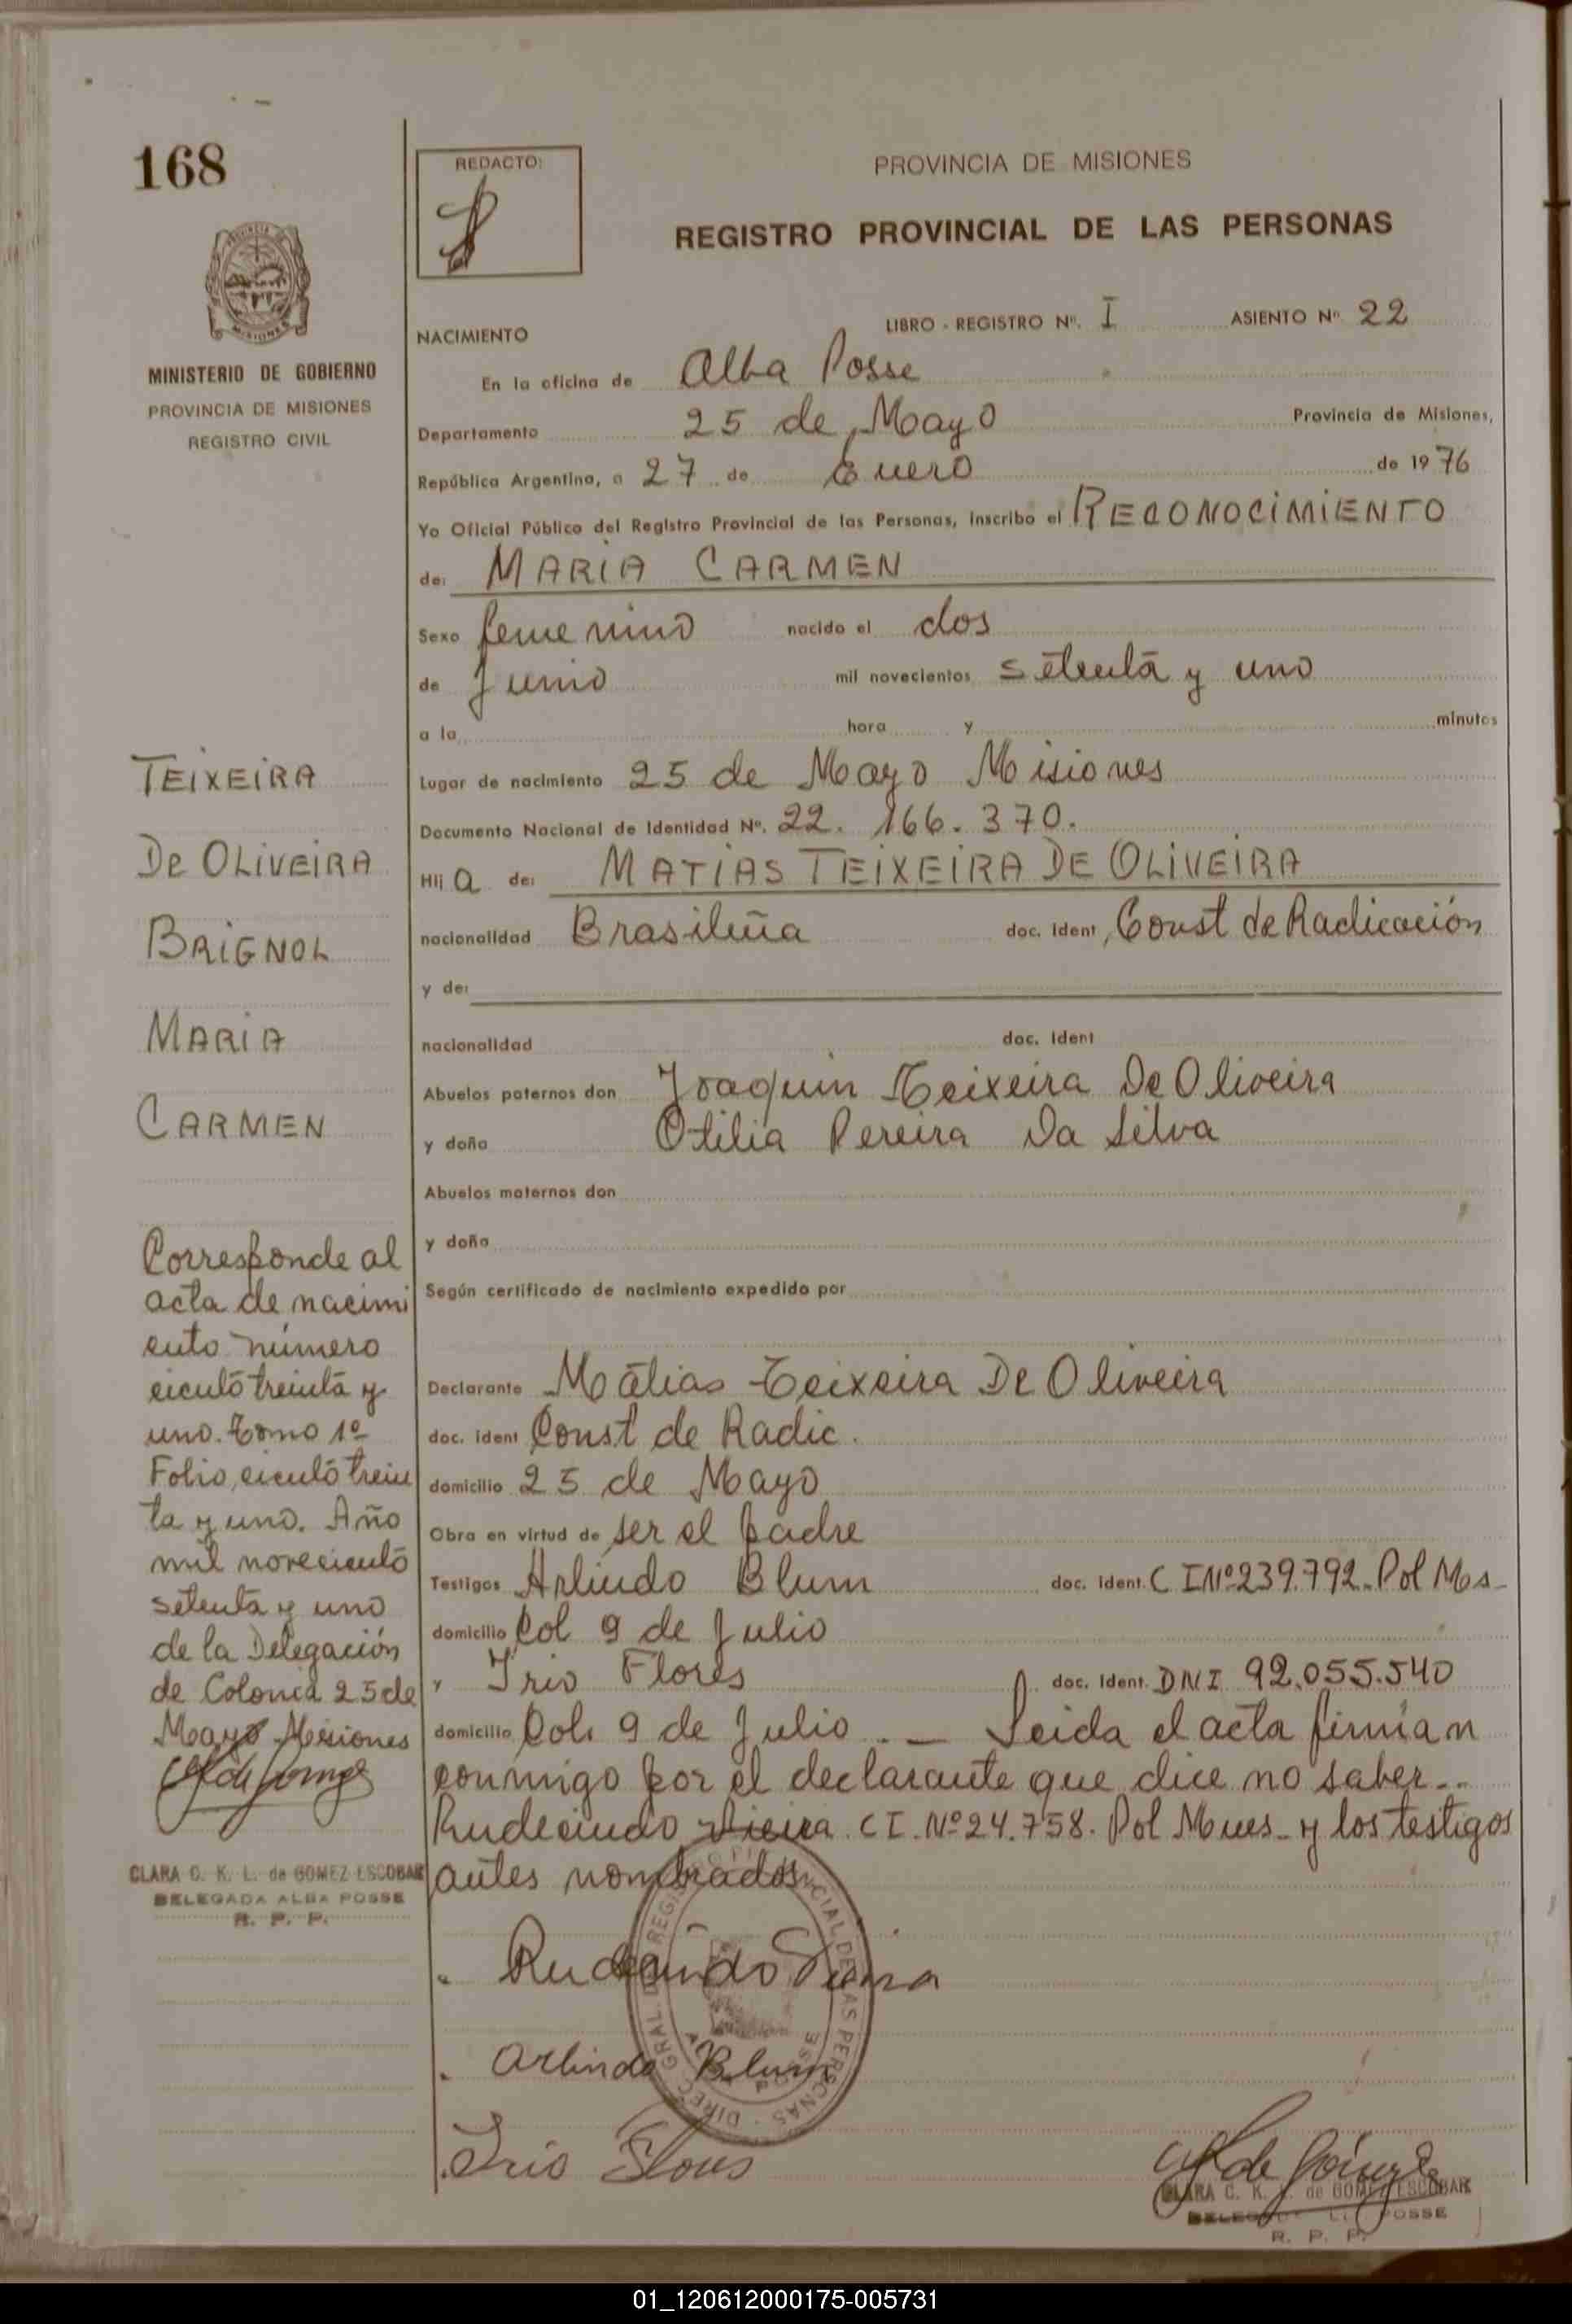 168
REDACTO:
PROVINCIA DE MISIONES
REGISTRO PROVINCIAL DE LAS PERSONAS
MINISTERIO DE GOBIERNO
PROVINCIA DE MISIONES
REGISTRO CIVIL
NACIMIENTO
LIBRO - REGISTRO Nº. I ASIENTO Nº 22
En la oficina de Alba Posse
Departamento 25 de Mayo Provincia de Misiones,
República Argentina, a 27 de Enero de 1976
Yo Oficial Público del Registro Provincial de las Personas, inscribo el RECONOCIMIENTO
de: MARIA CARMEN
Sexo femenino nacido el dos
de Junio mil novecientos setenta y uno
a la hora y minutos
Lugar de nacimiento 25 de Mayo Misiones
Documento Nacional de Identidad Nº. 22.166.370.
Hij a de: MATIAS TEIXEIRA DE OLIVEIRA
nacionalidad Brasileña doc. ident Const de Radicación
y de:
nacionalidad doc. ident
Abuelos paternos don Joaquin Teixeira De Oliveira
y doña Otilia Pereira Da Silva
Abuelos maternos don
y doña
Según certificado de nacimiento expedido por
Declarante Matias Teixeira De Oliveira
doc. ident Const de Radic.
domicilio 25 de Mayo
Obra en virtud de ser el padre
Testigos Arlindo Blum doc. ident. C I Nº 239.792. Pol Mns
domicilio Col 9 de Julio
y Irio Flores doc. ident. DNI 92.055.540
domicilio Col. 9 de Julio . — Leida el acta firman
conmigo por el declarante que dice no saber..
Rudecindo Vieira C I. Nº 24.758. Pol Mnes y los testigos
antes nombrados.
Rudecindo Vieira
Arlindo Blum
Irio Flores
TEIXEIRA
DE OLIVEIRA
BRIGNOL
MARIA
CARMEN
Corresponde al
acta de nacimi
ento número
ciento treinta y
uno. Tomo 1º
Folio, ciento trein
ta y uno. Año
mil novecientos
setenta y uno
de la Delegación
de Colonia 25 de
Mayo Misiones
CLARA C. K. L. de GOMEZ ESCOBAR
DELEGADA ALBA POSSE
R. P. P.
CLARA C. K. L. de GOMEZ ESCOBAR
DELEGADA ALBA POSSE
R. P. P.
01_120612000175-005731